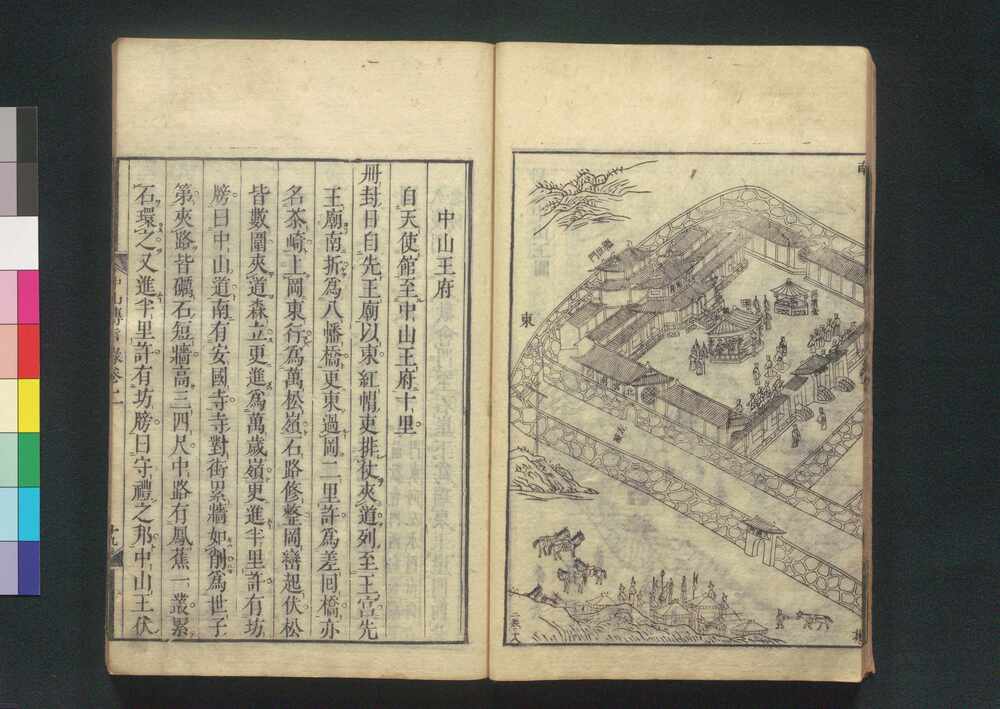 南
東
中山王府
自天使館至中山王府十里
冊封日自先王廟以東紅帽吏排仗夾道列至王宮先
王廟南折爲八幡橋更東過岡二里許爲差回橋亦
名茶崎上岡東行爲萬松嶺石路修整岡巒起伏松
皆數圍夾道森立更進爲萬歲嶺更進半里許有坊
牓曰中山道南有安國寺寺對街累牆如削爲世子
第夾路皆礪石短牆高三四尺中路有鳳蕉一叢累
石環之又進半里許有坊牓曰守禮之邦中山王伏
中山傳信錄卷二
十九